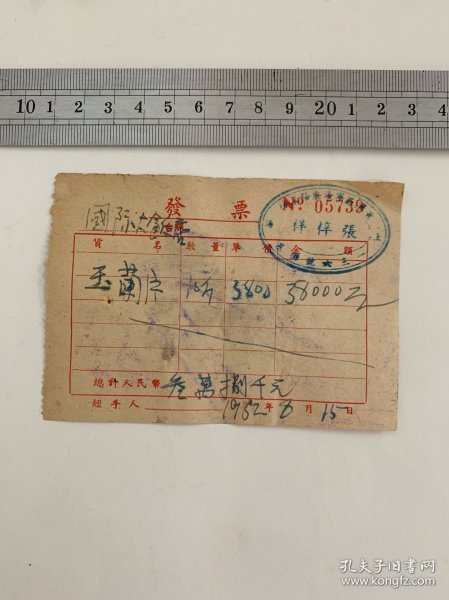 10 1 2 3 4 5 6 7 8 9 20 1 2 3 4
發 票
№ 05739
國际大飯店
台照
張倖祥
貨 名 數 量 單 價 金 額
玉蘭片 10斤 3800 38000元
總計人民幣 叁萬捌千元
經手人 1952年8月15日
孔夫子旧书网
www.kongfz.com